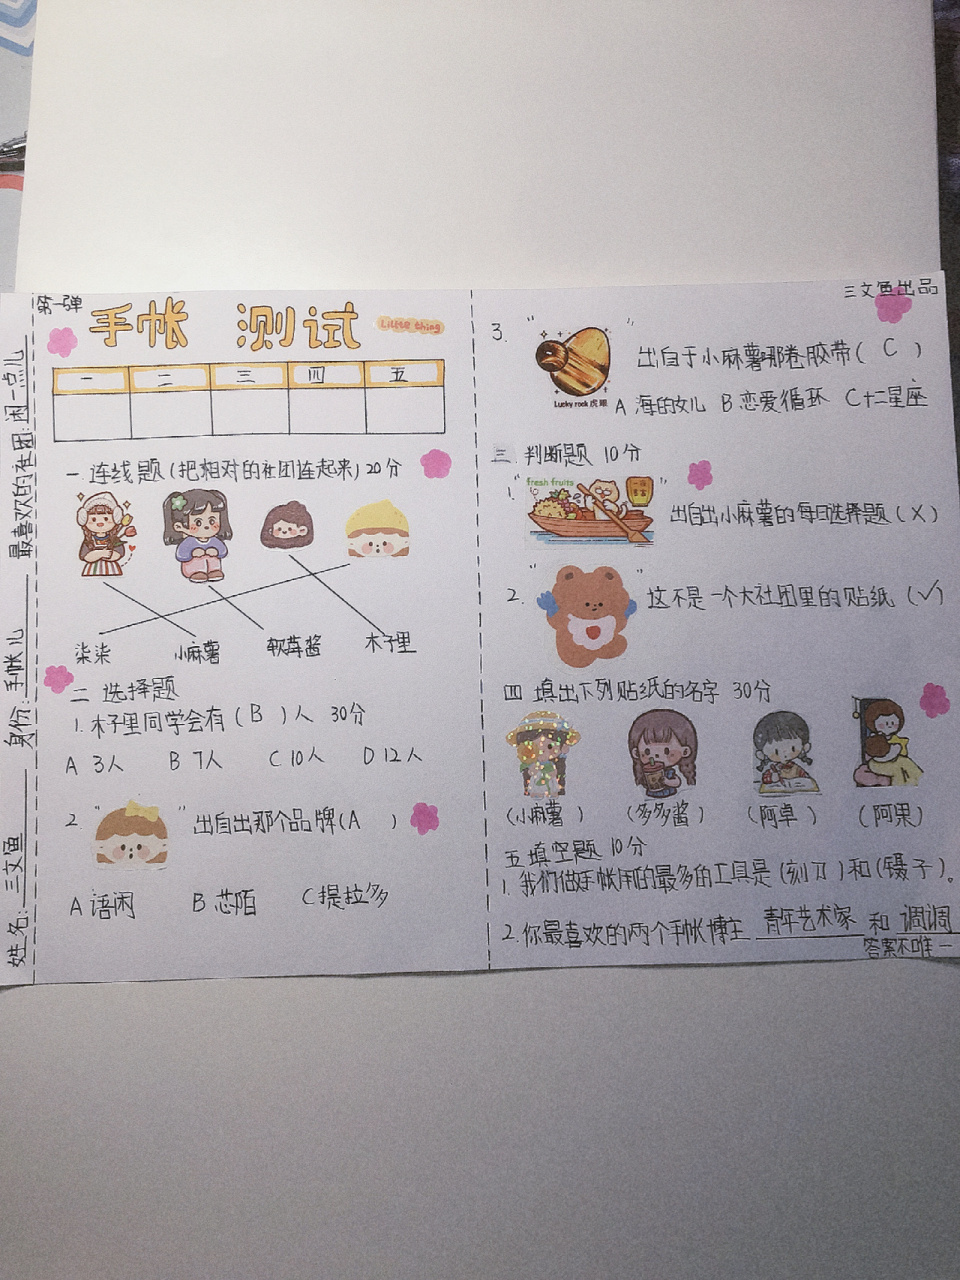 姓名:三文鱼 身份:手帐儿 最喜欢的社团:闲一点儿
第一弹
手帐 测试
Little thing
一 二 三 四 五
一.连线题(把相对的社团连起来)20分
柒柒 小麻薯 软莓酱 木子里
二 选择题
1.木子里同学会有(B)人 30分
A 3人 B 7人 C 10人 D 12人
2. " " 出自出那个品牌(A )
A 语闲 B 芯陌 C 提拉多
三文鱼出品
3. " "
出自于小麻薯哪卷胶带( C )
Lucky rock 虎眼
A 海的女儿 B 恋爱循环 C 十二星座
三.判断题 10分
fresh fruits
1. " " 出自出小麻薯的每日选择题(X)
2. " " 这不是一个大社团里的贴纸 (√)
四 填出下列贴纸的名字 30分
(小麻薯 ) (多多酱 ) (阿卓 ) (阿果)
五.填空题 10分
1.我们做手帐用的最多的工具是(刻刀)和(镊子)。
2.你最喜欢的两个手帐博主 青年艺术家 和 调调
答案不唯一